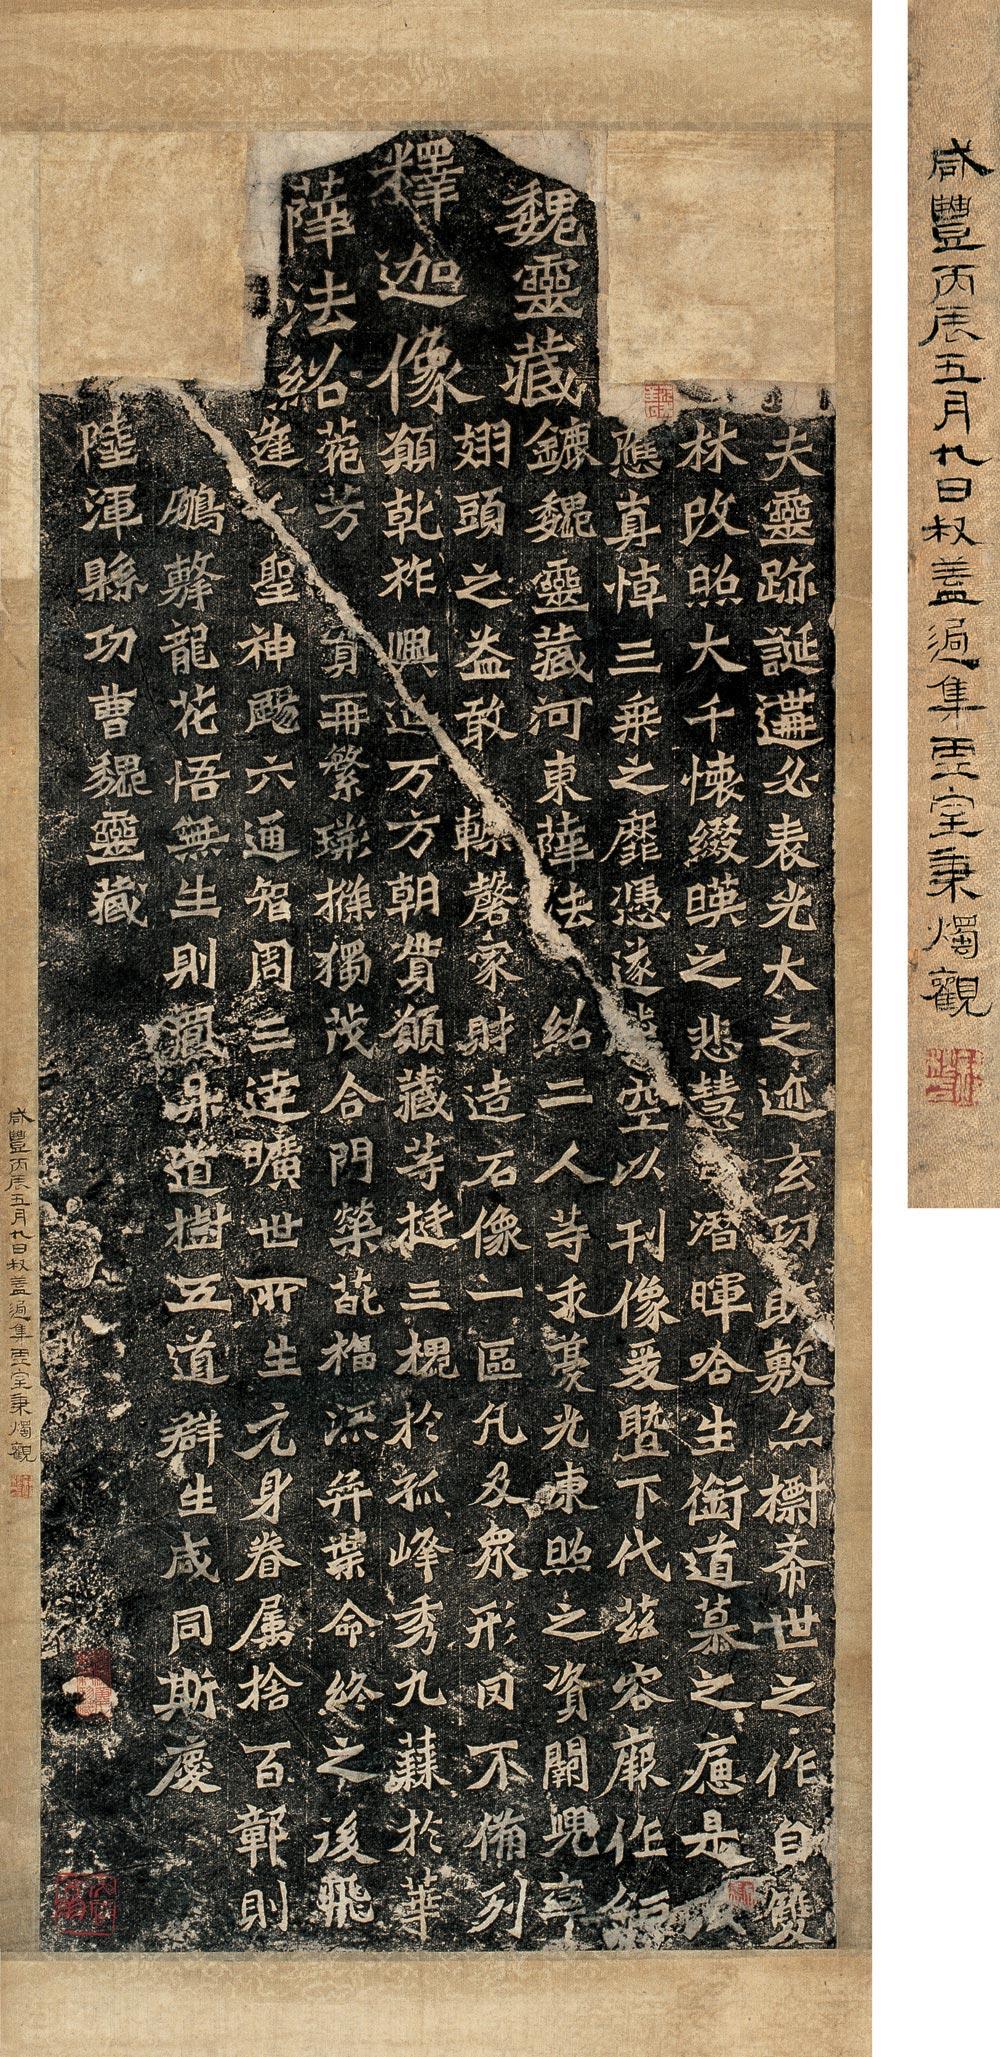 魏靈藏
釋迦像
薛法紹
夫靈跡誕遘必表光大之迹玄功旣敷亦標希世之作自雙
林改照大千懷綴暎之悲慧日潛暉哈生銜道慕之悳是以
應真悼三乘之靡憑遂騰空以刊像爰暨下代茲容厥作鉅
鏕魏靈藏河東薛法紹二人等求豪光東照之資闕兜率
翅頭之益敢輒磬家財造石像一區凡及眾形罔不備列
願乾祚興延万方朝貫願藏等挺三槐於孤峰秀九蕀於華
菀芳實再繁荊條獨茂合門榮葩福流奕葉命終之後飛
逢千聖神颺六通智周三達曠世所生元身眷属捨百鄣則
鵬擊龍花悟無生則飄昇道樹五道群生咸同斯慶
陸渾縣功曹魏靈藏
咸豐丙辰五月九日叔蓋過集盂室秉燭觀
咸豐丙辰五月九日叔蓋過集盂室秉燭觀